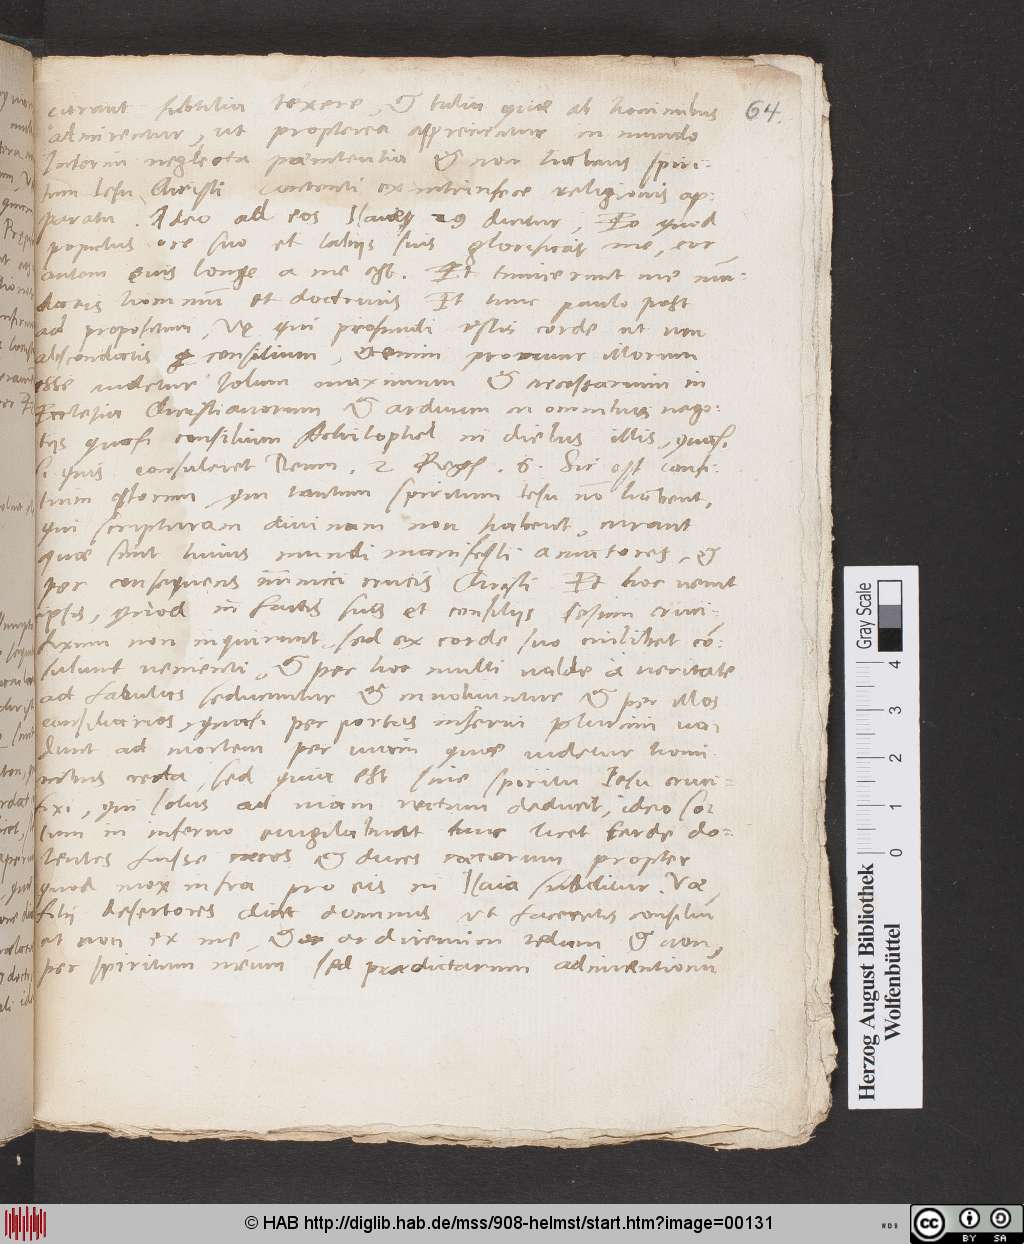 curant subtilia texere, & talia quae ab hominibus 64
admirentur, ut propterea apprecientur in mundo
Interim neglecta paenitentia & non habens spiri-
tum Iesu Christi contenti extrinsece religionis ap-
paratu. Ideo ad eos Isaiae 29 dicitur, Eo quod
populus ore suo et labijs suis glorificat me, cor
autem eius longe a me est. Et timuerunt me man-
datis hominum et doctrinis Et hinc paulo post
ad propositum, Vę qui profundi estis corde ut non
abscondatis consilium, etenim illorum
esse videtur solum maximum & necessarium in
Ecclesia Christianorum & arduum in omnibus nego-
tijs quasi consilium Achitophel in diebus illis, quasi
si quis consuleret Deum. 2 Reg. 6. Sic est consi-
lium istorum, qui tantum spiritum Iesu nō habent,
qui scripturam divinam non habent, curant
quae sunt huius mundi manifesti amatores, &
per consequens inimici crucis Christi Et hoc venit
ipsis, quod in factis suis et consilijs Iesum cruci-
fixum non inquirunt, sed ex corde suo cuilibet cō-
sulunt venienti, & per hoc multi valde a veritate
ad fabulas seducuntur & involvuntur & per illos
consiliarios, quasi per portas inferni plurimi va-
dunt ad mortem per viam quae videtur homi-
nibus recta, sed quia est sine spiritu Iesu cruci-
fixi, qui solus ad viam rectam deducit, ideo so-
lum in inferno evigilabunt tunc licet tarde do-
lentes fuisse caecos & duces caecorum propter
quod mox infra pro eis in Isaia subditur. Vae
filij desertores dicit dominus ut faceretis consiliū
et non ex me, & ordiremini telam & non
per spiritum meum sed praedictarum adinventionū
Gray Scale
4 3 2 1 0
Herzog August Bibliothek
Wolfenbüttel
© HAB http://diglib.hab.de/mss/908-helmst/start.htm?image=00131
cc BY SA